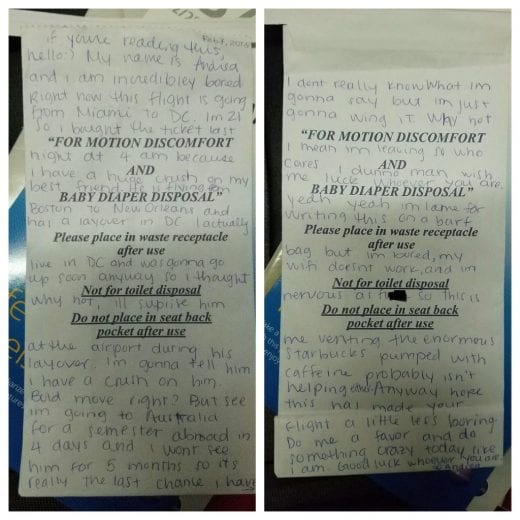 if you're reading this, Feb 7, 2015
hello:) My name is Andisa
and i am incredibley bored
Right now this flight is going
from Miami to DC. Im 21
So i bought the ticket last
"FOR MOTION DISCOMFORT
night at 4 am because
AND
i have a huge crush on my
best friend. He is flying from
BABY DIAPER DISPOSAL"
Boston to New Orleans and
has a layover in DC. I actually
Please place in waste receptacle
after use
live in DC and was gonna go
up soon anyway so i thought
Not for toilet disposal
why not, ill suprise him
Do not place in seat back
pocket after use
at the airport during his
layover. Im gonna tell him
i have a crush on him.
Bold move right? But see
im going to Australia
for a semester abroad in
4 days and i wont see
him for 5 months so its
really the last chance i have
I dont really know What im
gonna say but im just
gonna wing it. Why not
"FOR MOTION DISCOMFORT
I mean im leaving so who
AND
cares. I dunno man wish
me luck whoever you are.
BABY DIAPER DISPOSAL"
yeah yeah im lame for
writing this on a barf
Please place in waste receptacle
after use
bag but im bored, my
wifi doesnt work, and im
Not for toilet disposal
nervous as so this is
Do not place in seat back
pocket after use
me venting the enormous
Starbucks pumped with
caffeine probably isn't
helping Anyway hope
this has made your
flight a little less boring.
Do me a favor and do
something crazy today like
i am. Good luck whoever you are.
- Andisa